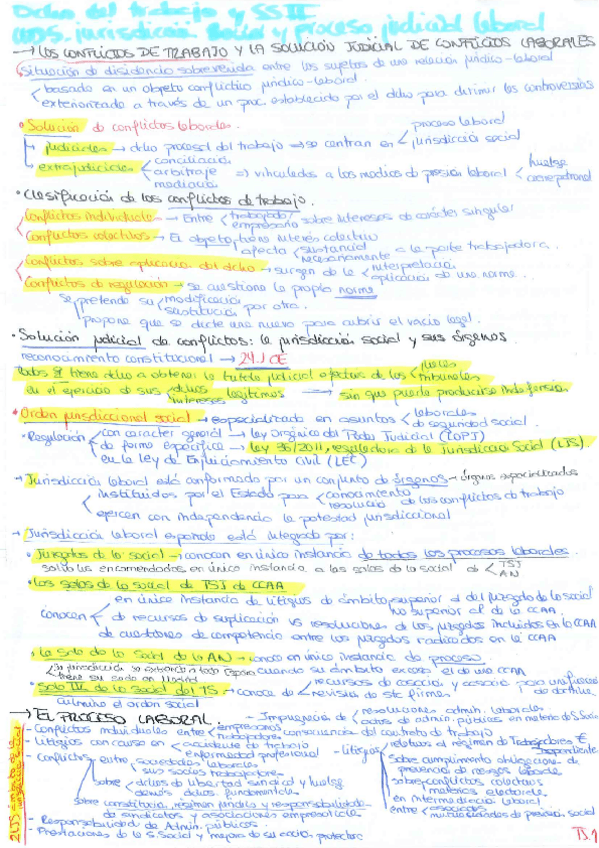 Dcho del trabajo y SS III
UD5. jurisdicción social y proceso judicial laboral
→ LOS CONFLICTOS DE TRABAJO Y LA SOLUCIÓN JUDICIAL DE CONFLICTOS LABORALES
Situación de disidencia sobrevenida entre los sujetos de una relación jurídico-laboral
basado en un objeto conflictivo jurídico-laboral
exteriorizado a través de un proc. establecido por el dcho para dirimir las controversias
Solución de conflictos laborales.
judiciales → dcho procesal del trabajo → se centran en proceso laboral jurisdicción social
extrajudiciales conciliación arbitraje mediación ⇒ vinculados a los medios de presión laboral huelga cierre patronal
• Clasificación de los conflictos de trabajo.
Conflictos individuales → Entre trabajador/ empresario sobre intereses de carácter singular
Conflictos colectivos → El objeto tiene interés colectivo
afecta sustancial necesariamente a la parte trabajadora.
Conflictos sobre aplicación del dcho → surgen de la interpretación aplicación de una norma...
Conflictos de regulación → se cuestiona la propia norma
Se pretende su modificación sustitución por otra.
propone que se dicte una nueva para cubrir el vacío legal.
• Solución judicial de conflictos: la jurisdicción social y sus órganos
reconocimiento constitucional → 24.1 CE
Todos tiene dcho a obtener la tutela judicial efectiva de los jueces tribunales
en el ejercicio de sus dchos intereses legítimos → sin que pueda producirse indefensión
• Orden jurisdiccional social → especializado en asuntos laborales de seguridad social.
• Regulación con carácter general → Ley Orgánica del Poder Judicial (LOPJ)
de forma específica → Ley 36/2011, reguladora de la Jurisdicción Social (LJS).
en la Ley de Enjuiciamiento Civil (LEC)
- Jurisdicción laboral está conformada por un conjunto de órganos → órganos especializados
instituidos por el Estado para conocimiento resolución de los conflictos de trabajo
ejercen con independencia la potestad jurisdiccional
→ Jurisdicción laboral española está integrada por:
• Juzgados de lo social → conocen en única instancia de todos los procesos laborales.
salvo los encomendados en única instancia a las salas de lo social de TSJ AN
• Las salas de lo social de TSJ de CCAA
en única instancia de litigios de ámbito superior al del juzgado de lo social no superior al de la CCAA
conocen de recursos de suplicación vs resoluciones de los juzgados incluidos en la CCAA
de cuestiones de competencia entre los juzgados radicados en la CCAA
• La Sala de lo Social de la AN → conoce en única instancia de procesos
su jurisdicción se extiende a toda España tiene su sede en Madrid cuando su ámbito exceda el de una CCAA
• Sala IV de lo Social del TS → conoce de recursos de casación y casación para unificación de doctrina
revisión de stc firmes
culmina el orden social
→ EL PROCESO LABORAL.
- Conflictos individuales entre empresarios trabajadores consecuencia del contrato de trabajo
- Impugnación de resoluciones admin. laborales actos de admin. públicas en materia de S. Social
- Litigios con causa en accidente de trabajo enfermedad profesional
- Litigios relativos al régimen de Trabajadores dependiente
- Conflictos entre sociedades laborales sus socios trabajadores
sobre dchos de libertad sindical y huelga demás dchos. fundamentales
sobre constitución, régimen jurídico y responsabilidad de sindicatos y asociaciones empresariales
sobre cumplimiento obligaciones de prevención de riesgos laborales
sobre conflictos colectivos
materias electorales
en intermediación laboral
entre asociados mutualidades de previsión social
- Responsabilidad de Admin. públicas
- Prestaciones de la S. Social y mejora de su acción protectora
2 LJS
T5.1